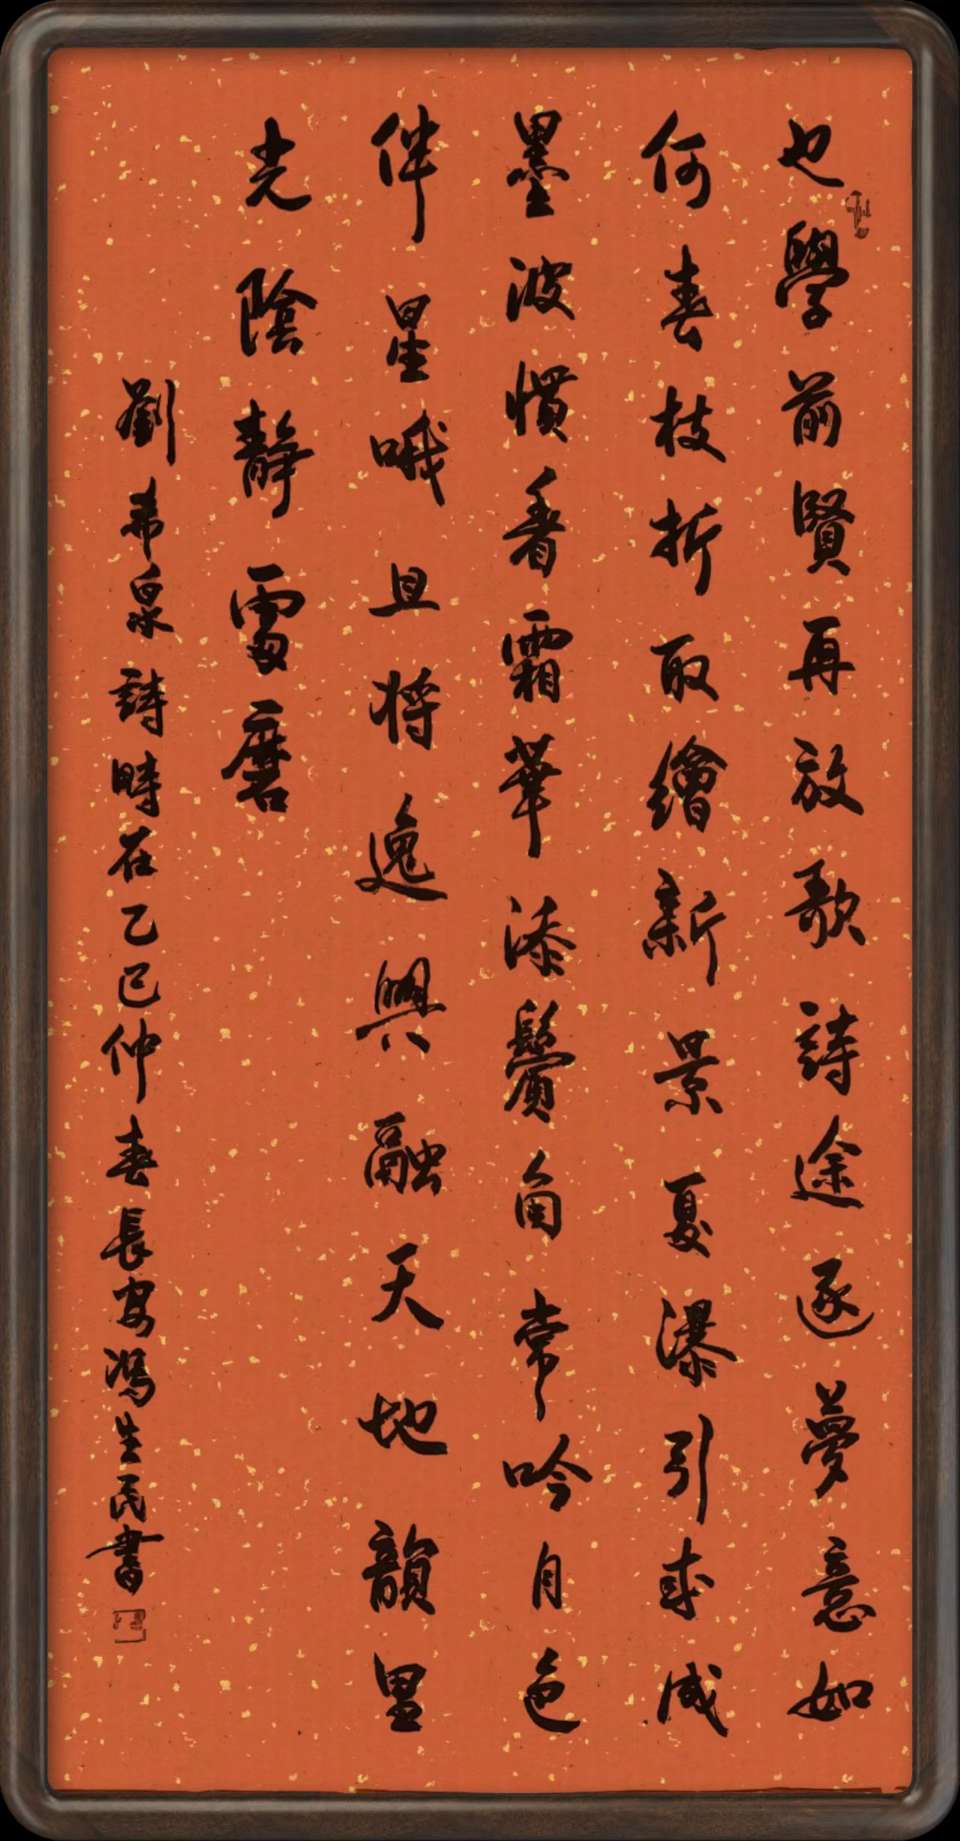 也學前賢再放歌詩途逐夢意如
何春枝折取繪新景夏瀑引來成
墨波慣看霜華添鬢角常吟月色
伴星哦且將逸興融天地韻里
光陰靜磨
劉希泉詩時在乙巳仲春長安馮生民書